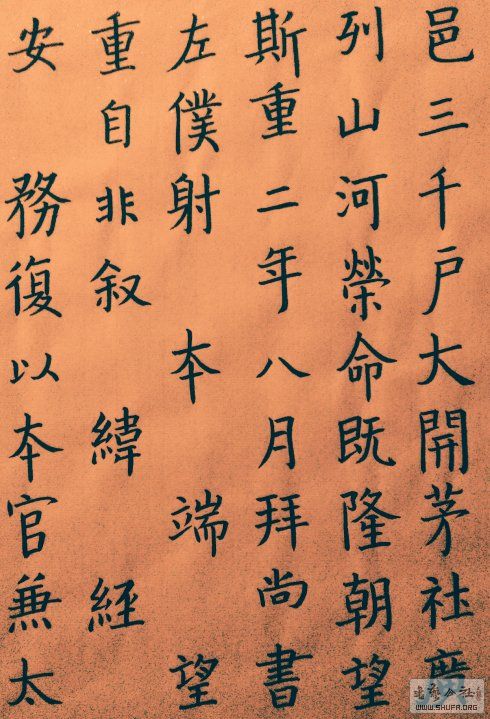 邑三千戶大開茅社廣
列山河榮命既隆朝望
斯重二年八月拜尚書
左僕射 本 端 望
重自非叙 緯 經
安 務復以本官兼太
WWW.SHUFA.ORG